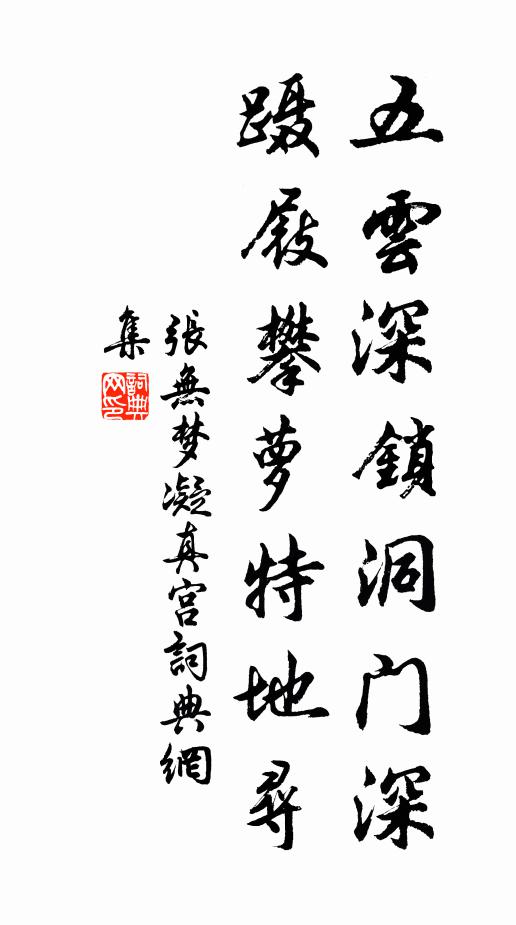 五雲深鎖洞门深
蹑屐攀萝特地尋
張無梦凝真宫詞典網
集
詞典網印